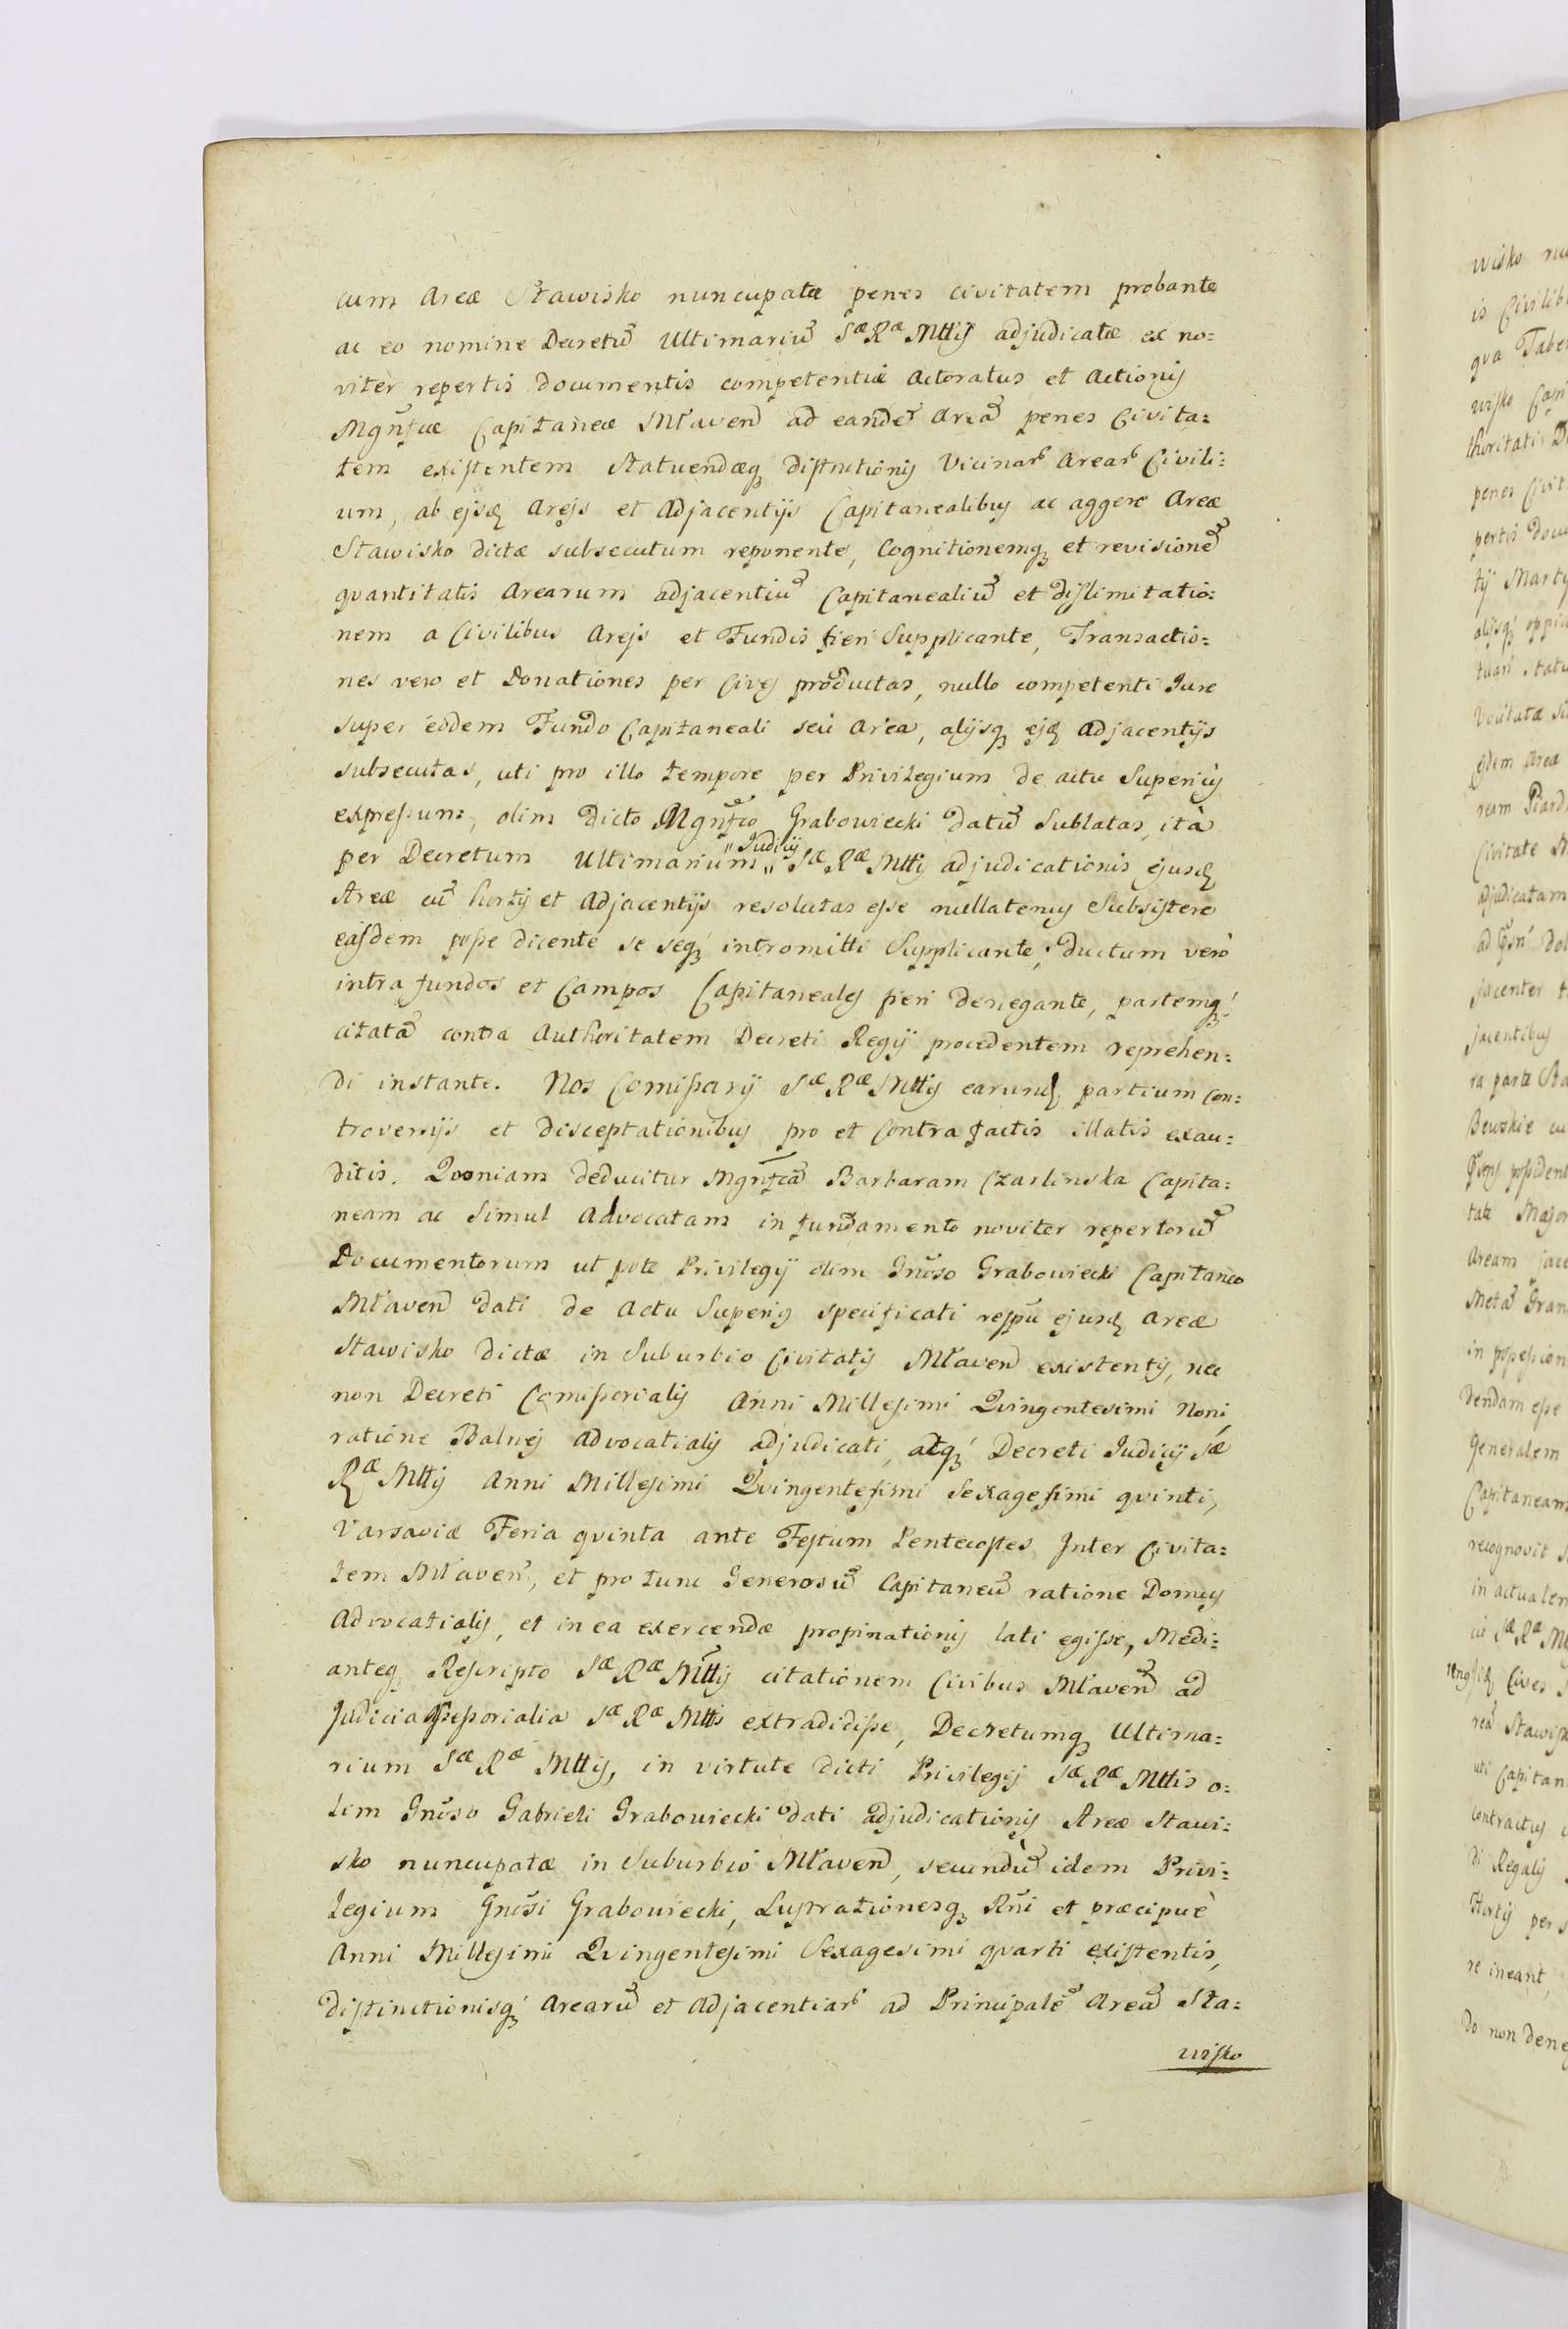 cum Areæ Stawisko nuncupatæ penes civitatem probante
ac eo nomine Decretũ Ultimariũ Sæ Ræ Mttis adjudicatæ ex no=
viter repertis documentis competentiæ Actoratus et Actionis
Mgnfcæ Capitaneæ Młaven ad eandẽ Areã penes Civita=
tem existentem Statuendæq distinctionis Vicinar Arear Civili=
um, ab ejsd Arejs et Adjacentijs Capitanealibus ac aggere Areæ
Stawisko dictæ subsecutum reponente, Cognitionemq et revisionẽ
quantitatis Arearum adjacentiũ Capitanealiũ et dislimitatio=
nem a Civilibus Arejs et Fundis fieri Supplicante, Transactio=
nes vero et Donationes per Cives productas, nullo competenti Iure
super eodem Fundo Capitaneali seu Area, alijsq ejd Adjacentijs
subsecutas, uti pro illo tempore per Privilegium de actu Superius
expressum, olim dicto Mgnfco Grabowiecki datũ Sublatas, ità
per Decretum Ultimarium "Judicij" Sæ Ræ Mttis adjudicationis ejusd
Areæ cũ hortis et Adjacentijs resolutas esse nullatenus Subsistere
easdem posse dicente se seq intromitti Supplicante, ductum verò
intra fundos et Campos Capitaneales fieri denegante, partemq
citatã contra Authoritatem Decreti Regij procedentem reprehen=
di instante. Nos Comissarij Sæ Ræ Mttis earund partium con=
troversijs et disceptationibus pro et contra factis illatis exau=
ditis. Quoniam deducitur Mgnfcã Barbaram Czarlinska Capita=
neam ac Simul Advocatam in fundamento noviter repertorũ
Documentorum ut pote Privilegij olim Gnõso Grabowiecki Capitaneo
Młaven dati de Actu Superius specificati respũ ejusd Areæ
Stawisko dictæ in Suburbio Civitatis Młaven existentis, nec
non Decreti Comissorialis Anni Millesimi Quingentesimi Noni,
ratione Balnej Advocatialis adjudicati, atq Decreti Iudicij Sæ
Ræ Mttis Anni Millesimi Quingentesimi Sexagesimi quinti,
Varsaviæ Feria quinta ante Festum Pentecostes Inter Civita=
tem Młaven, et pro tunc Generosũ Capitaneũ ratione Domus
Advocatialis, et in ea exercendæ propinationis lati egisse, Medi=
anteq Rescripto Sæ Ræ Mttis citationem Civibus Młaven ad
Judicia Assessorialia Sæ Ræ Mttis extradidisse, Decretumq Ultima=
rium Sæ Ræ Mttis, in virtute dicti Privilegij Sæ Ræ Mttis o=
lim Gnõso Gabrieli Grabowiecki dati adjudicationis Areæ Stawi=
sko nuncupatæ in Suburbio Młaven, secundũ idem Privi=
legium Gnõsi Grabowiecki, Lustrationesq Rñi et præcipuè
Anni Millesimi Quingentesimi Sexagesimi quarti existentis,
distinctionisq Arearũ et Adjacentiar ad Principalẽ Areã Sta=
wisko